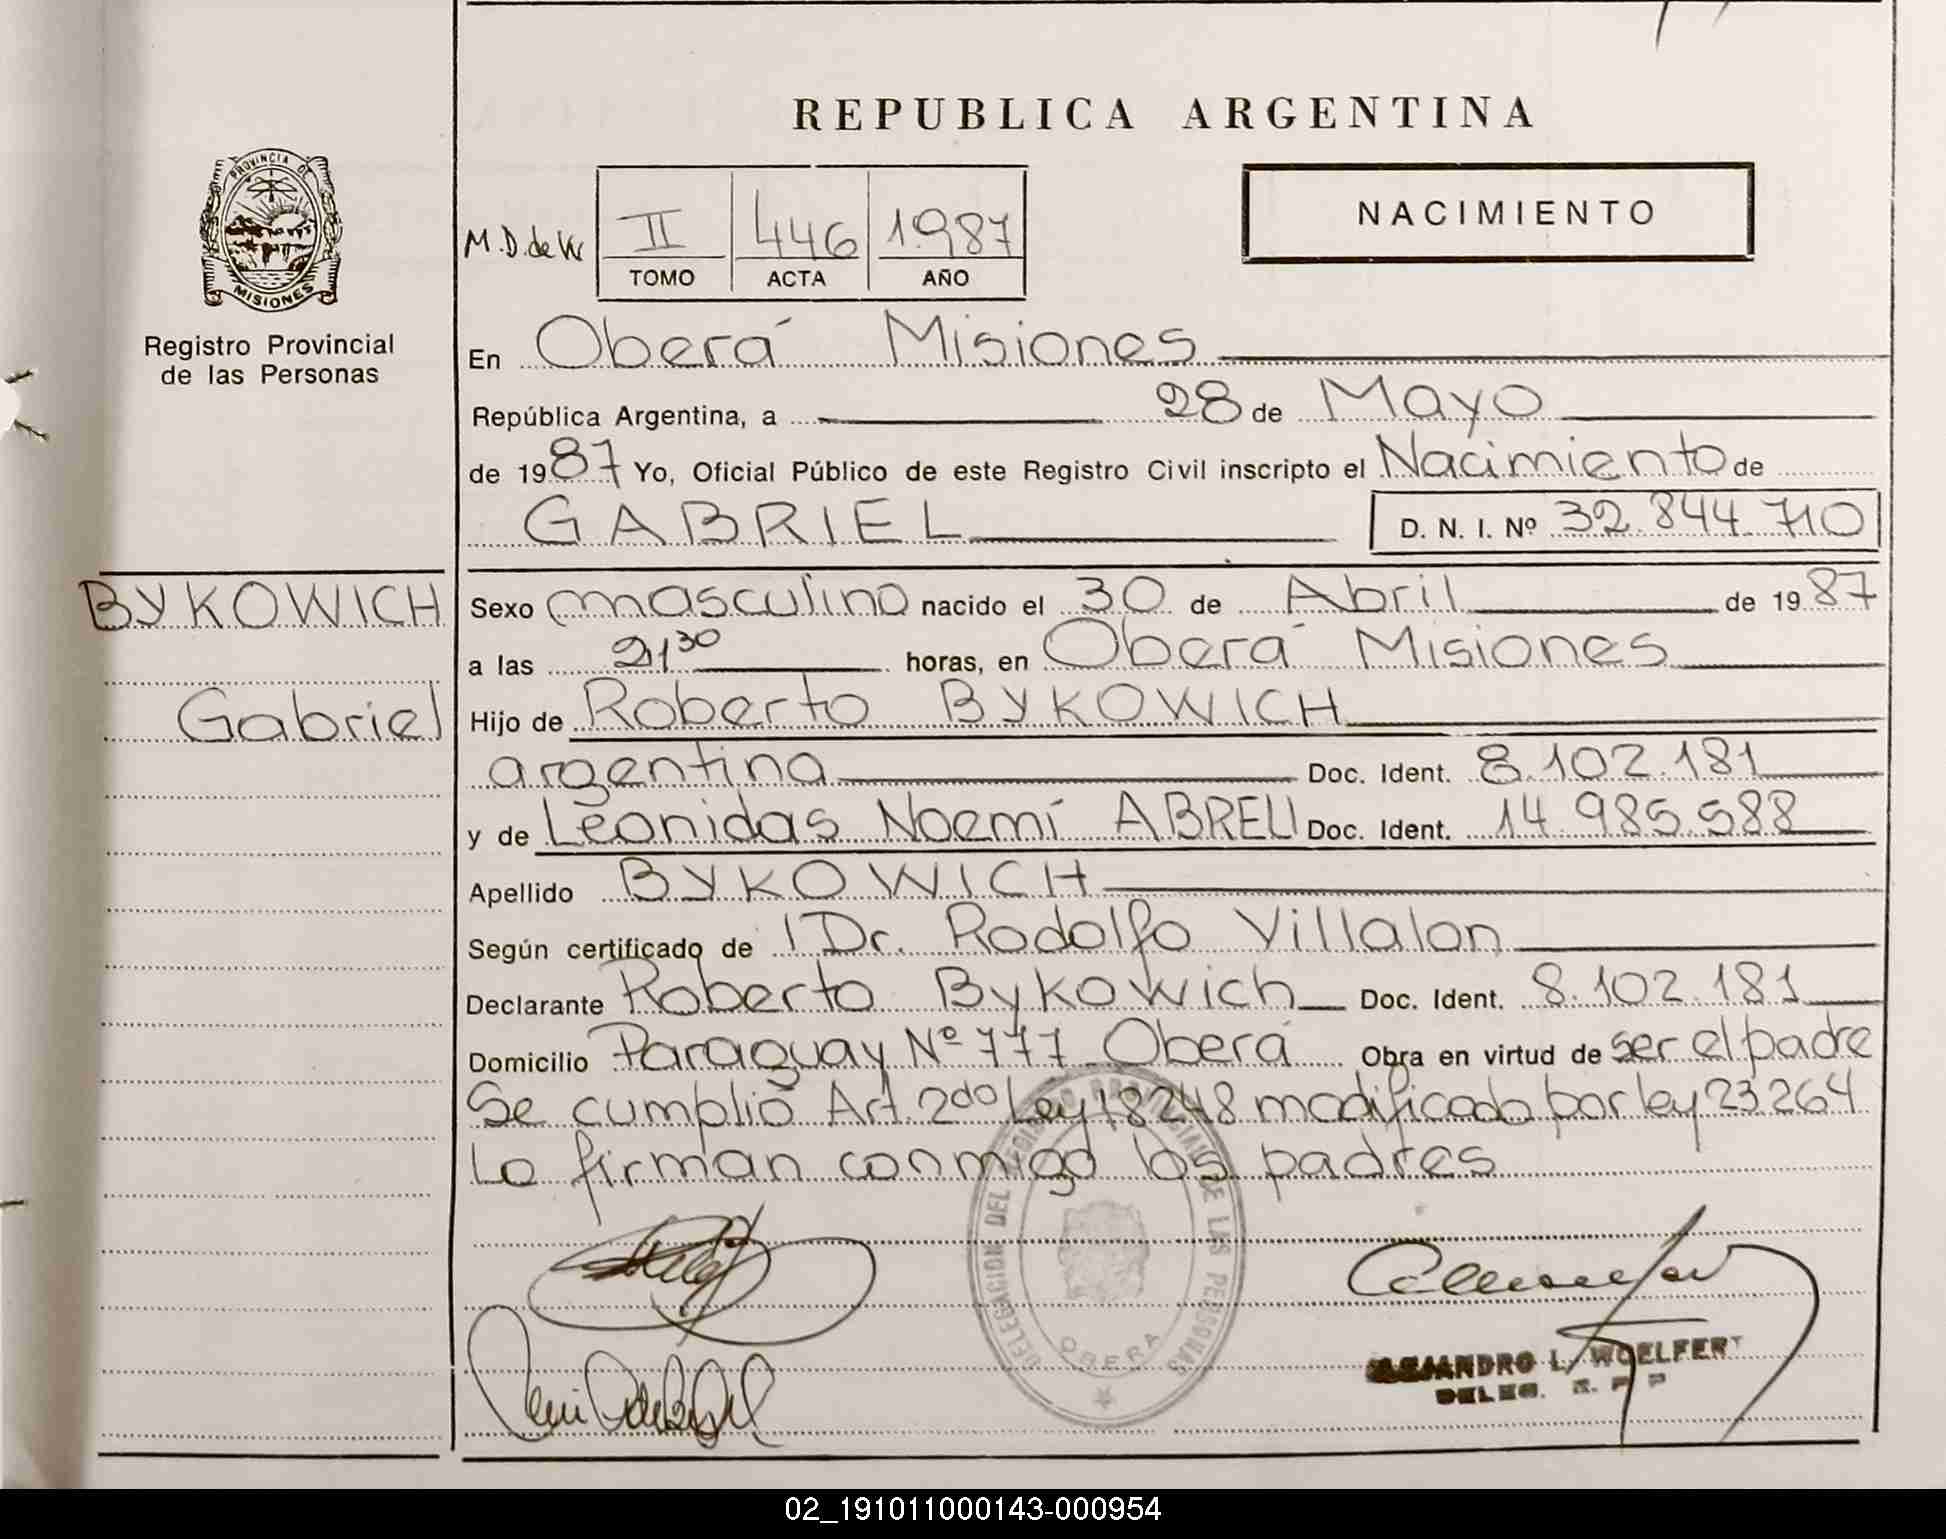 REPUBLICA ARGENTINA
PROVINCIA DE
MISIONES
Registro Provincial
de las Personas
M.D. de
II 446 1987
TOMO ACTA AÑO
NACIMIENTO
En Oberá Misiones
República Argentina, a 28 de Mayo
de 1987 Yo, Oficial Público de este Registro Civil inscripto el Nacimiento de
GABRIEL D. N. I. Nº 32.844.710
BYKOWICH
Gabriel
Sexo masculino nacido el 30 de Abril de 1987
a las 21,30 horas, en Oberá Misiones
Hijo de Roberto BYKOWICH
argentina Doc. Ident. 8.102.181
y de Leonidas Noemí ABREU Doc. Ident. 14.985.588
Apellido BYKOWICH
Según certificado de Dr. Rodolfo Villalon
Declarante Roberto Bykowich Doc. Ident. 8.102.181
Domicilio Paraguay Nº 777 Oberá Obra en virtud de ser el padre
Se cumplió Art. 2do Ley 18248 modificado por ley 23264
Lo firman conmigo los padres
DELEGACION DEL REGISTRO PROVINCIAL DE LAS PERSONAS
OBERA
ALEJANDRO L. WOELFERT
DELEG. R. P. P
02_191011000143-000954